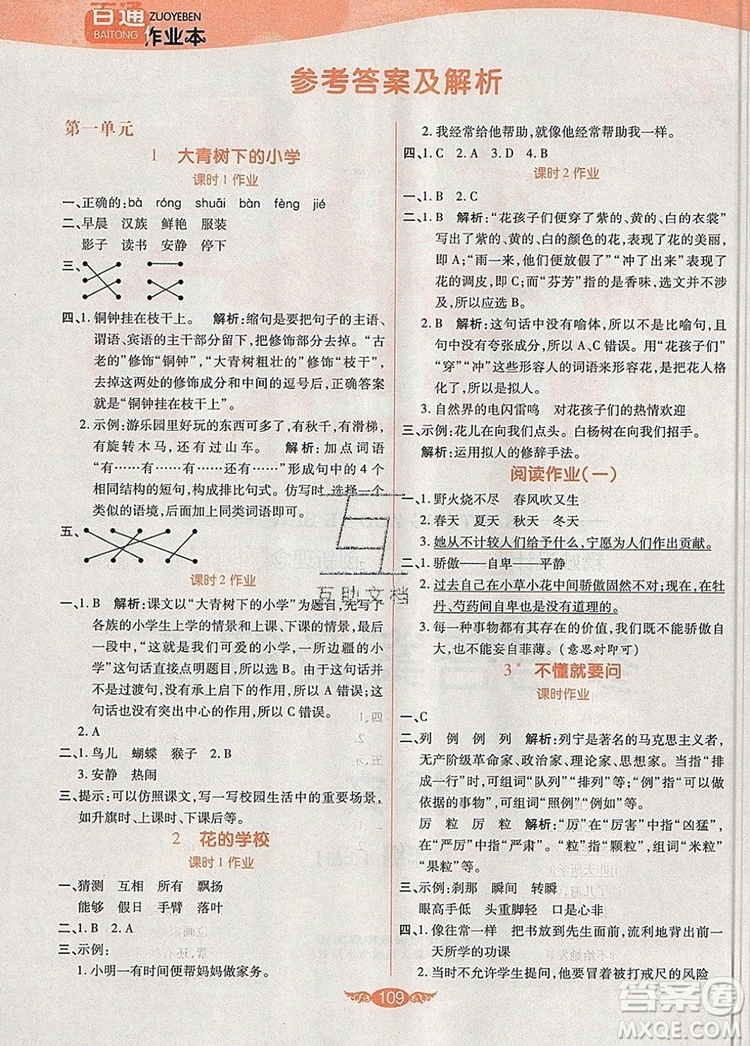 百通
BAITONG
ZUOYEBEN
作业本
参考答案及解析
第一单元
1 大青树下的小学
课时1作业
一、正确的:bà róng shuāi bàn fèng jié
二、早晨 汉族 鲜艳 服装
影子 读书 安静 停下
三、
四、1. 铜钟挂在枝干上。 解析:缩句是要把句子的主语、
谓语、宾语的主干部分留下,把修饰部分去掉。“古
老的”修饰“铜钟”,“大青树粗壮的”修饰“枝干”,
去掉这两处的修饰成分和中间的逗号后,正确答案
就是“铜钟挂在枝干上”。
2. 示例:游乐园里好玩的东西可多了,有秋千,有滑梯,
有旋转木马,还有过山车。 解析:加点词语
“有……有……有……还有……”形成句中的4个
相同结构的短句。仿写时,选择一个
类似的语境,后面加上同类词语即可。
五、
课时2作业
一、1. B 解析:课文以“大青树下的小学”为题目,先写了
各族的小学生上学的情景和上课、下课的情景,最后
一段中,“这就是我们可爱的小学,一所边疆的小
学”这句话直接点明题目,所以选B。这句话起不到
引出下文的作用,所以A错误;这句话在课文最后,
不是过渡句,没有承上启下的作用,所以C错误;
这句话也没有突出中心的作用,所以D错误。
2. A
二、1. 鸟儿 蝴蝶 猴子 2. B
3. 安静 热闹
三、提示:可以仿照课文,写一写校园生活中的重要场景,
如升旗、上课时、下课后等。
2 花的学校
课时1作业
一、猜测 互相 所有 飘扬
能够 假日 手臂 落叶
二、1. B 2. A
三、示例:
1. 小明一有时间便帮妈妈做家务。
2. 我经常给他帮助,就像他经常帮助我一样。
四、1. C 2. A 3. D 4. B
课时2作业
一、1. B 2. C
二、1. B 解析:“花孩子们便穿了紫的、黄的、白的衣裳”
写出了紫的、黄的、白的颜色的花,表现了花的美丽,
即A;“雨一来,他们便放假了”“冲了出来”表现了
花的调皮,即C;“芬芳”指的是香味,选文没有表现
花的芬芳,所以选B。
2. B 解析:这句话中没有喻体,所以不是比喻句,且
句中没有夸张成分,所以A、C错误。用“花孩子们”
“穿”“冲”这些形容人的词语来形容花,赋予花以人
的形象,所以是拟人。
3. 自然界的电闪雷鸣 对花孩子们的热情欢迎
三、示例:花儿向我们点头。白杨树向我们招手。
解析:运用拟人的修辞手法。
阅读作业(一)
一、1. 野火烧不尽 春风吹又生
2. 春天 夏天 秋天 冬天
3. 她从不计较人们给予什么,宁愿为人们作出贡献。
二、1. 骄傲——自卑——平静
2. 过去自己在小草小花中间骄傲固然不对;现在在牡
丹、芍药间自卑也是没有道理的。
3. 每一种事物都有其存在的价值,我们既不能骄傲自
大,也不能妄自菲薄。(意思对即可)
3* 不懂就要问
课时作业
一、C
二、列 例 例 列 解析:列宁是著名的马克思主义者,
无产阶级革命家、政治家、理论家、思想家。“列”指
“行列”,可组词“队列”“排列”等;“例”指“用来作为
依据的事物”,可组词“照例”“例如”等。
厉 粒 厉 粒 解析:“厉”指“凶猛”,可组词“厉害”
等,“厉”还指“严肃”。“粒”指“颗粒”,组词“米粒”
“果粒”等。
三、示例:刹那 瞬间 转瞬
眼高手低 头重脚轻 口是心非
四、1. 像往常一样 把书放到先生面前,流利地背出前一
天所学的功课
2. 当时不允许学生提问,他要冒着被打戒尺的风险
互助文档
109
答案圈
MXQE.COM